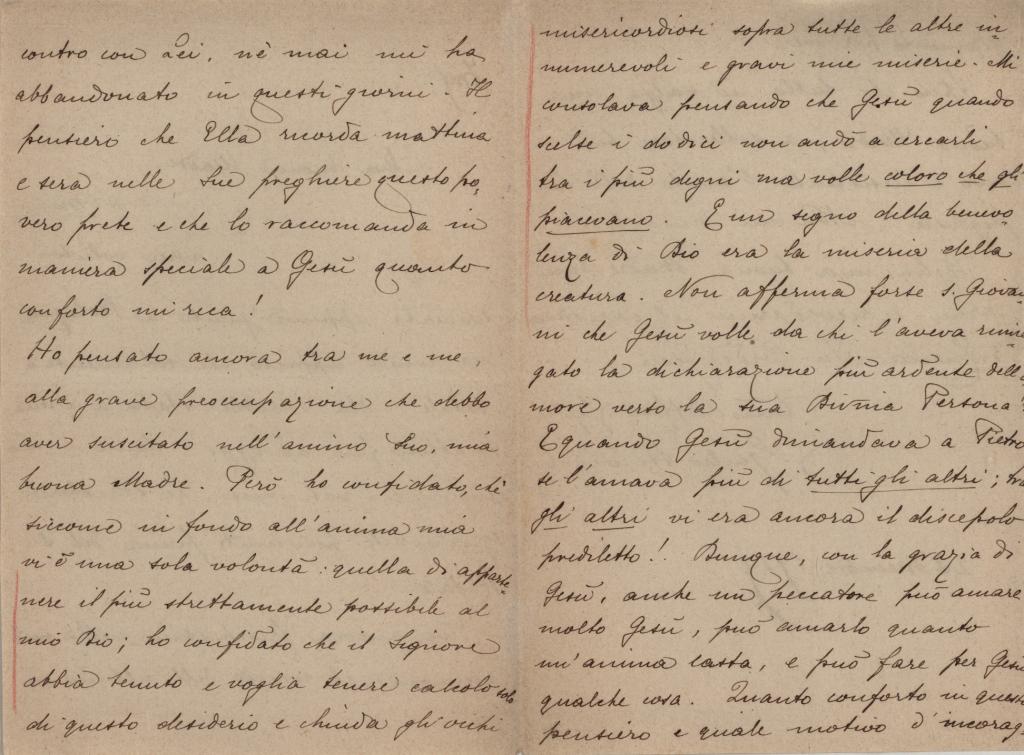 contro con Lei, nè mai mi ha
abbandonato in questi giorni. Il
pensiero che Ella ricorda mattina
e sera nelle Sue preghiere questo po-
vero prete e che lo raccomanda in
maniera speciale a Gesù quanto
conforto mi reca!
Ho pensato ancora tra me e me,
alla grave preoccupazione che debbo
aver suscitato nell'animo Suo, mia
buona Madre. Però ho confidato, chè
siccome in fondo all'anima mia
vi è una sola volontà: quella di apparte-
nere il più strettamente possibile al
mio Dio; ho confidato che il Signore
abbia tenuto e voglia tenere calcolo solo
di questo desiderio e chiuda gli occhi
misericordiosi sopra tutte le altre in-
numerevoli e gravi mie miserie. Mi
consolava pensando che Gesù quando
scelse i dodici non andò a cercarli
tra i più degni ma volle coloro che gli
piacevano. E un segno della benevo-
lenza di Dio era la miseria della
creatura. Non afferma forse S. Giovan-
ni che Gesù volle, da chi l'aveva rinne-
gato la dichiarazione più ardente dell'a
more verso la sua Divina Persona?
E quando Gesù dimandava a Pietro
se l'amava più di tutti gli altri; tra
gli altri vi era ancora il discepolo
prediletto! Dunque, con la grazia di
Gesù, anche un peccatore può amare
molto Gesù, può amarlo quanto
un'anima casta, e può fare per Gesù
qualche cosa. Quanto conforto in questo
pensiero e quale motivo d'incorag-